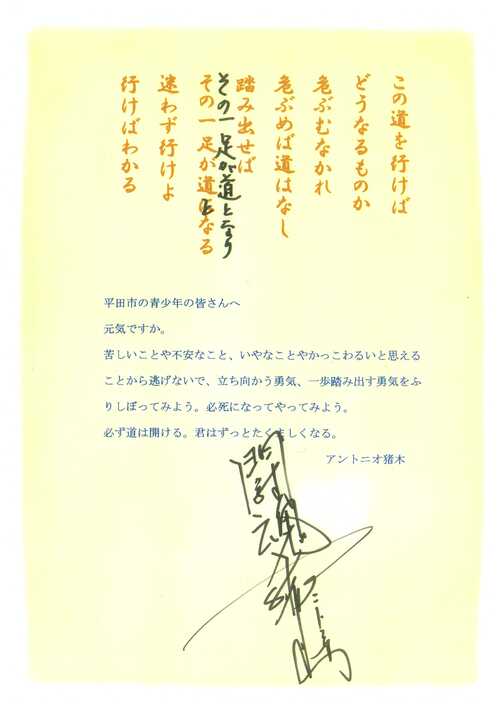 この道を行けば
どうなるものか
危ぶむなかれ
危ぶめば道はなし
踏み出せば
その一足が道となり
その一足が道になる
迷わず行けよ
行けばわかる
平田市の青少年の皆さんへ
元気ですか。
苦しいことや不安なこと、いやなことやかっこわるいと思える
ことから逃げないで、立ち向かう勇気、一歩踏み出す勇気をふ
りしぼってみよう。必死になってやってみよう。
必ず道は開ける。君はずっとたくましくなる。
アントニオ猪木
闘魂